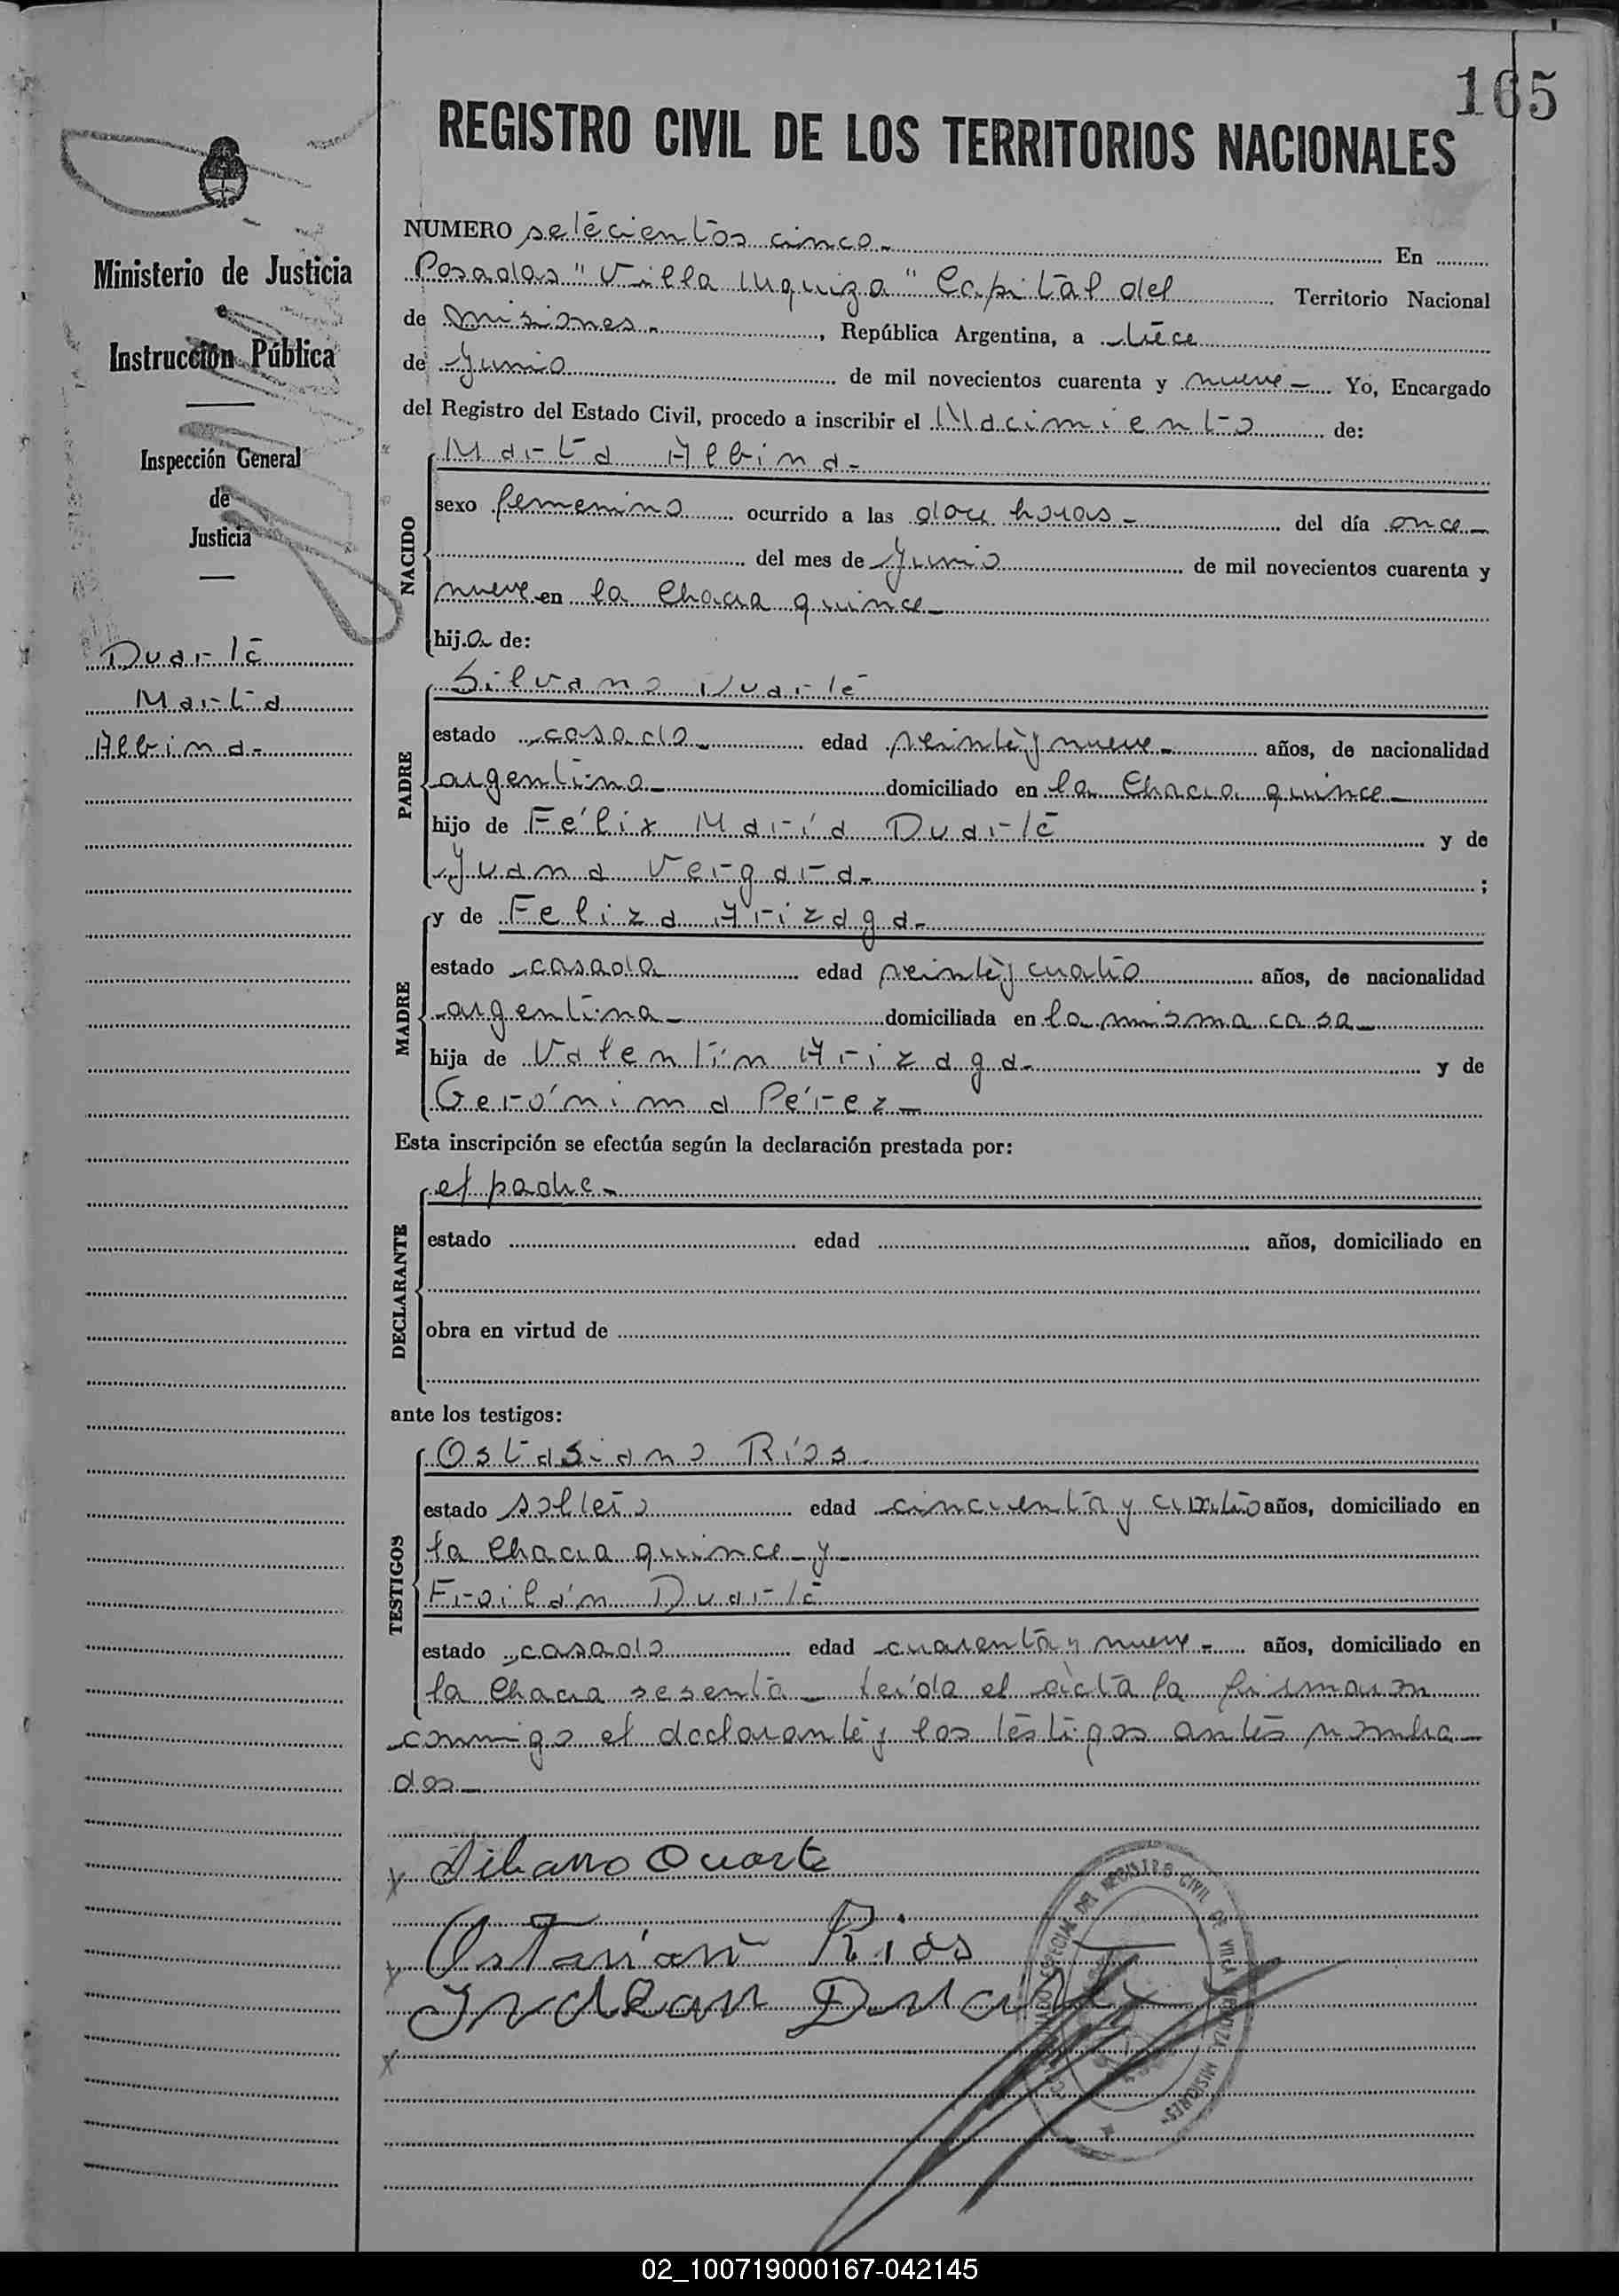 165
REGISTRO CIVIL DE LOS TERRITORIOS NACIONALES
Ministerio de Justicia
e
Instrucción Pública
Inspección General
de
Justicia
Duarte
Marta
Albina-
NUMERO setecientos cinco- En
Posadas "Villa Urquiza" Capital del Territorio Nacional
de Misiones-, República Argentina, a trece
de Junio de mil novecientos cuarenta y nueve- Yo, Encargado
del Registro del Estado Civil, procedo a inscribir el Nacimiento de:
NACIDO
Marta Albina-
sexo femenino ocurrido a las doce horas- del día once-
del mes de Junio de mil novecientos cuarenta y
nueve en la Chacra quince-
hija de:
PADRE
Silvano Duarte
estado casado- edad veinte y nueve- años, de nacionalidad
argentino- domiciliado en la Chacra quince-
hijo de Félix María Duarte y de
Juana Vergara- ;
MADRE
y de Feliza Arizaga-
estado casada edad veinte y cuatro años, de nacionalidad
argentina- domiciliada en la misma casa-
hija de Valentín Arizaga- y de
Gerónima Pérez-
Esta inscripción se efectúa según la declaración prestada por:
DECLARANTE
el padre-
estado edad años, domiciliado en
obra en virtud de
ante los testigos:
TESTIGOS
Ostasiano Ríos
estado soltero edad cincuenta y cuatro años, domiciliado en
la Chacra quince-y-
Froilán Duarte
estado casado edad cuarenta y nueve- años, domiciliado en
la Chacra sesenta- Leída el acta la firmaron
conmigo el declarante y los testigos antes nombra-
dos-
x Silvano Duarte
x Rios
Duarte
x
DEL REGISTRO CIVIL DE VILLA URQUIZA MISIONES
02_100719000167-042145